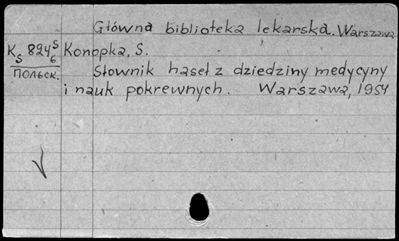 Główna biblioteka lekarska. Warszawa.
K 824 S
S 6
Konopka, S.
польск.
Słownik haseł z dziedziny medycyny
i nauk pokrewnych. Warszawa, 1954